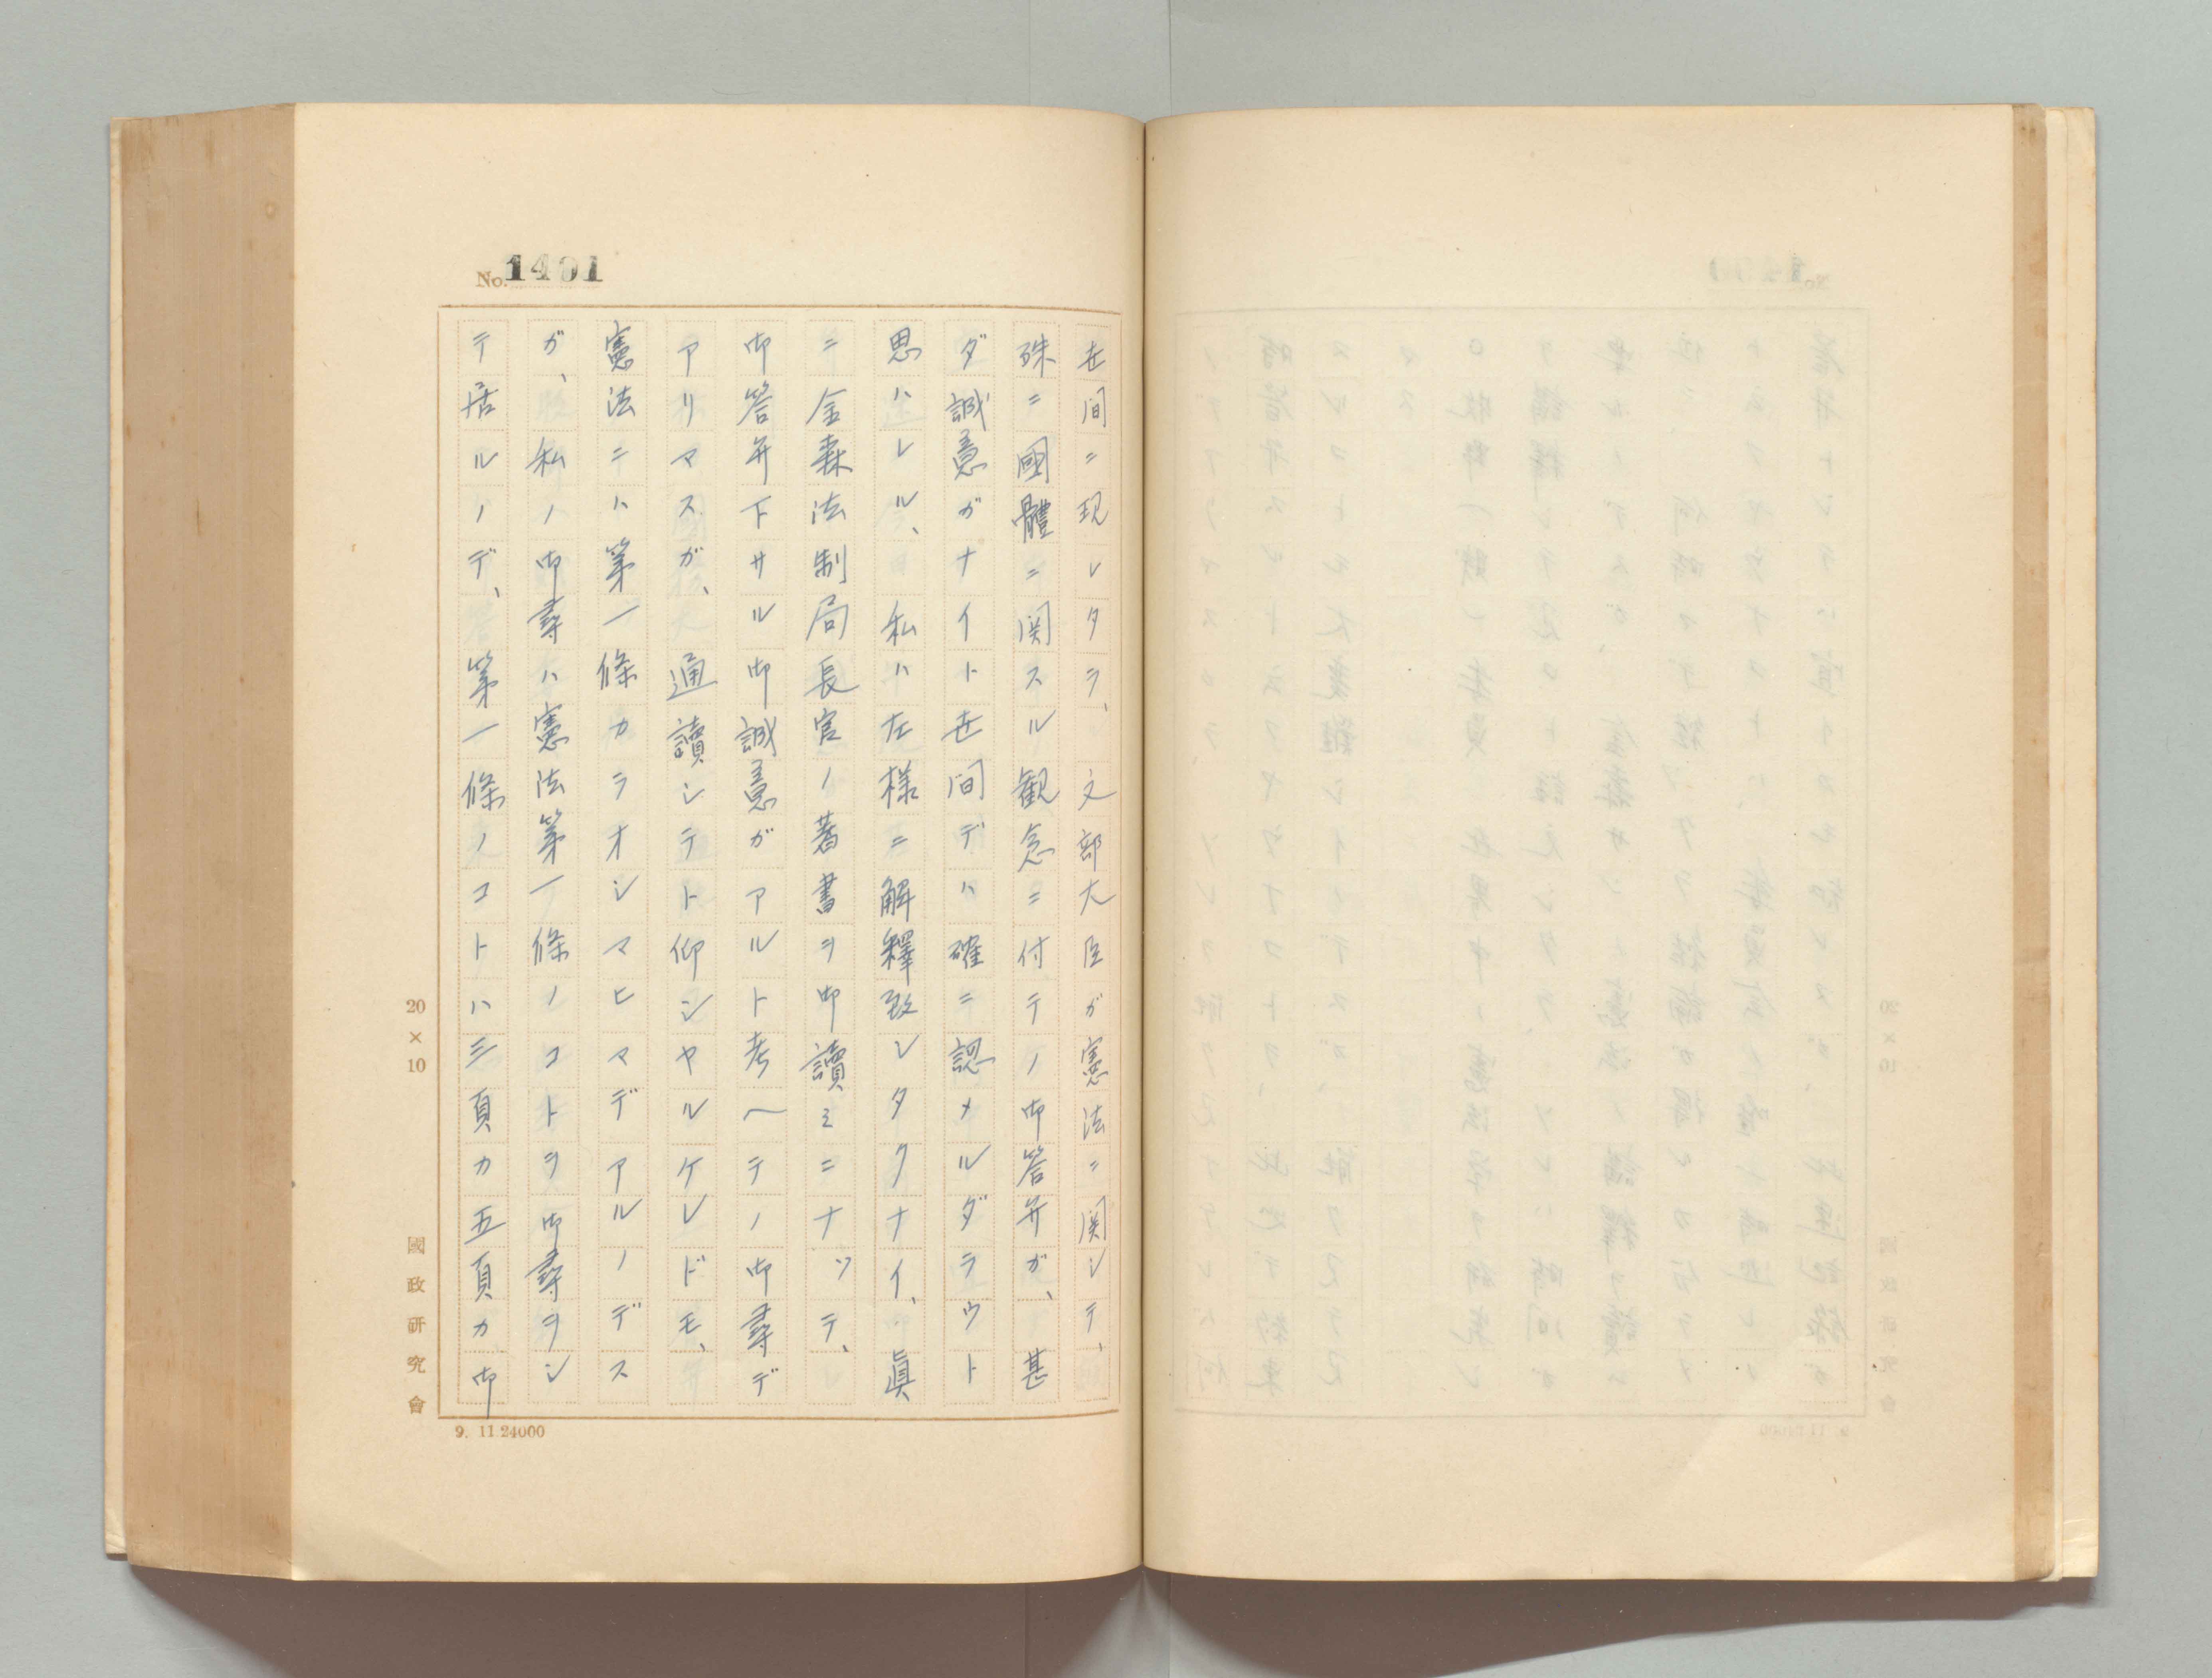 No. 1401
世間ニ現レタラ、文部大臣ガ憲法ニ関シテ、
殊ニ國體ニ関スル観念ニ付テノ御答弁ガ、甚
ダ誠意ガナイト世間デハ確ニ認メルダラウト
思ハレル、私ハ左様ニ解釋致シタクナイ、眞
ニ金森法制局長官ノ著書ヲ御讀ミニナッテ、
御答弁下サル御誠意ガアルト考ヘテノ御尋デ
アリマスガ、通讀シテト仰シヤルケレドモ、
憲法ニハ第一條カラオシマヒマデアルノデス
ガ、私ノ御尋ハ憲法第一條ノコトヲ御尋ヲシ
テ居ルノデ、第一條ノコトハ三頁カ五頁カ御
20×10
國政研究會
9. 11 24000